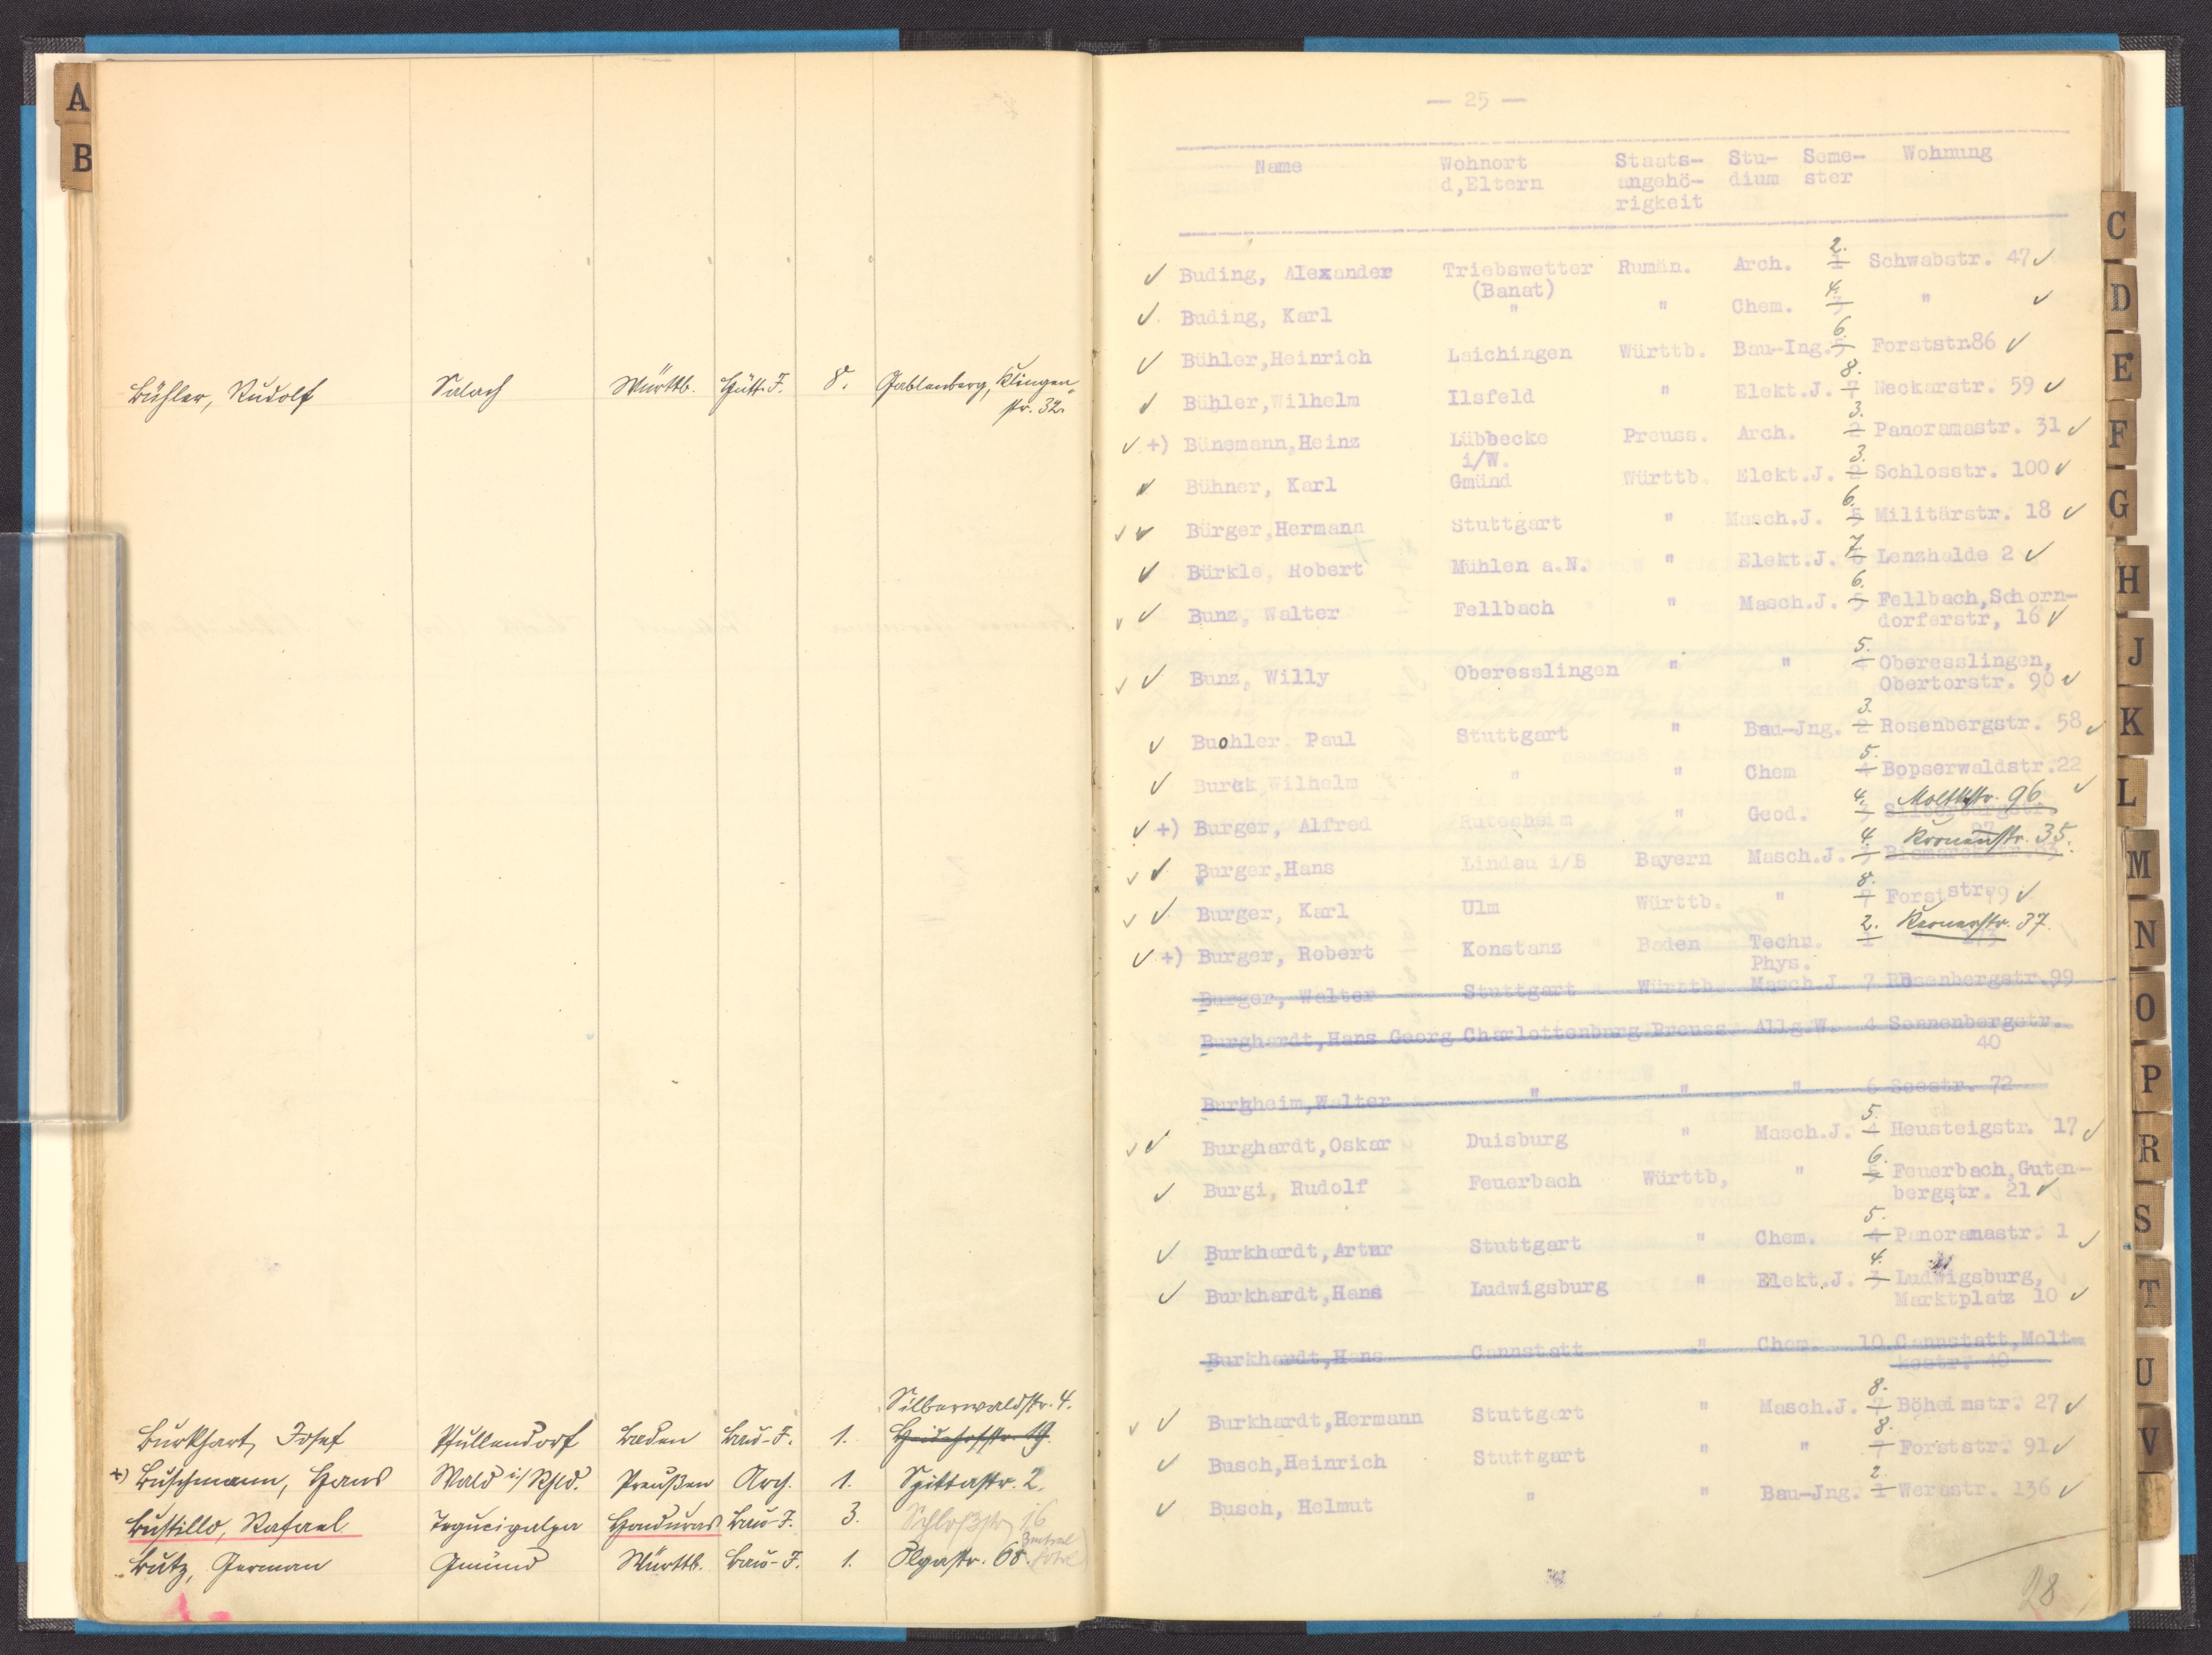 A
B
Bühler, Rudolf Salach Württb. Hütt. J. 8. Gablenberg, Klingen-
str. 32.
Silberwaldstr. 4.
Burkhart, Josef Pfullendorf Baden Bau-J. 1. Heidehofstr. 19.
+) Buschmann, Hans Wald i/Rhld. Preußen Arch. 1. Spittastr. 2.
Bustillo, Rafael Tegucigalpa Honduras Bau-J. 3. Schloßstr. 16
Zentral
Butz, German Gmünd Württb. Bau-J. 1. Olgastr. 68. hotel
— 25 —
Name Wohnort Staats- Stu- Seme- Wohnung
d,Eltern angehö- dium ster
rigkeit
2.
✓ Buding, Alexander Triebswetter Rumän. Arch. 1 Schwabstr. 47 ✓
(Banat) 4.
✓ Buding, Karl " " Chem. 3 " ✓
6.
✓ Bühler,Heinrich Laichingen Württb. Bau-Ing. 5 Forststr.86 ✓
8.
✓ Bühler,Wilhelm Ilsfeld " Elekt.J. 7 Neckarstr. 59 ✓
3.
✓ +) Bünemann,Heinz Lübbecke Preuss. Arch. 2 Panoramastr. 31 ✓
i/W. 3.
✓ Bühner, Karl Gmünd Württb. Elekt.J. 2 Schlosstr. 100 ✓
6.
✓✓ Bürger,Hermann Stuttgart " Masch.J. 5 Militärstr. 18 ✓
7.
✓ Bürkle, Robert Mühlen a.N. " Elekt.J. 6 Lenzhalde 2 ✓
6.
✓✓ Bunz, Walter Fellbach " Masch.J. 5 Fellbach,Schorn-
dorferstr, 16 ✓
5.
✓✓ Bunz, Willy Oberesslingen " " 4 Oberesslingen,
Obertorstr. 90 ✓
3.
✓ Buohler, Paul Stuttgart " Bau-Jng. 2 Rosenbergstr. 58 ✓
5.
✓ Burck,Wilhelm " " Chem 4 Bopserwaldstr.22 ✓
4. Moltkestr. 96
✓ +) Burger, Alfred Rutesheim " Geod. 3 Silberburgstr.
4. Kronenstr. 35.
✓✓ Burger,Hans Lindau i/B Bayern Masch.J. 3 Bismarckstr.
8.
✓✓ Burger, Karl Ulm Württb. " 7 Forststr. 79 ✓
2. Kronenstr. 37.
✓ +) Burger, Robert Konstanz Baden Techn. 1
Phys.
Burger, Walter Stuttgart Württb. Masch.J. 7 Rosenbergstr.99
Burghardt,Hans Georg Charlottenburg Preuss. Allg.W. 4 Sonnenbergstr.
40
Burgheim,Walter " " " 6 Seestr. 72
5.
✓✓ Burghardt,Oskar Duisburg " Masch.J. 4 Heusteigstr. 17 ✓
6.
✓ Burgi, Rudolf Feuerbach Württb, " 5 Feuerbach,Guten-
bergstr. 21 ✓
5.
✓ Burkhardt,Artur Stuttgart " Chem. 4 Panoramastr. 1 ✓
4.
✓ Burkhardt,Hans Ludwigsburg " Elekt.J. 3 Ludwigsburg,
Marktplatz 10 ✓
Burkhardt,Hans Cannstatt " Chem. 10 Cannstatt,Molt-
kestr. 40
8.
✓✓ Burkhardt,Hermann Stuttgart " Masch.J. 7 Böheimstr. 27 ✓
8.
✓ Busch,Heinrich Stuttgart " " 7 Forststr. 91 ✓
2.
✓ Busch, Helmut " " Bau-Jng. 1 Werastr. 136 ✓
28
C
D
E
F
G
H
J
K
L
M
N
O
P
R
S
T
U
V